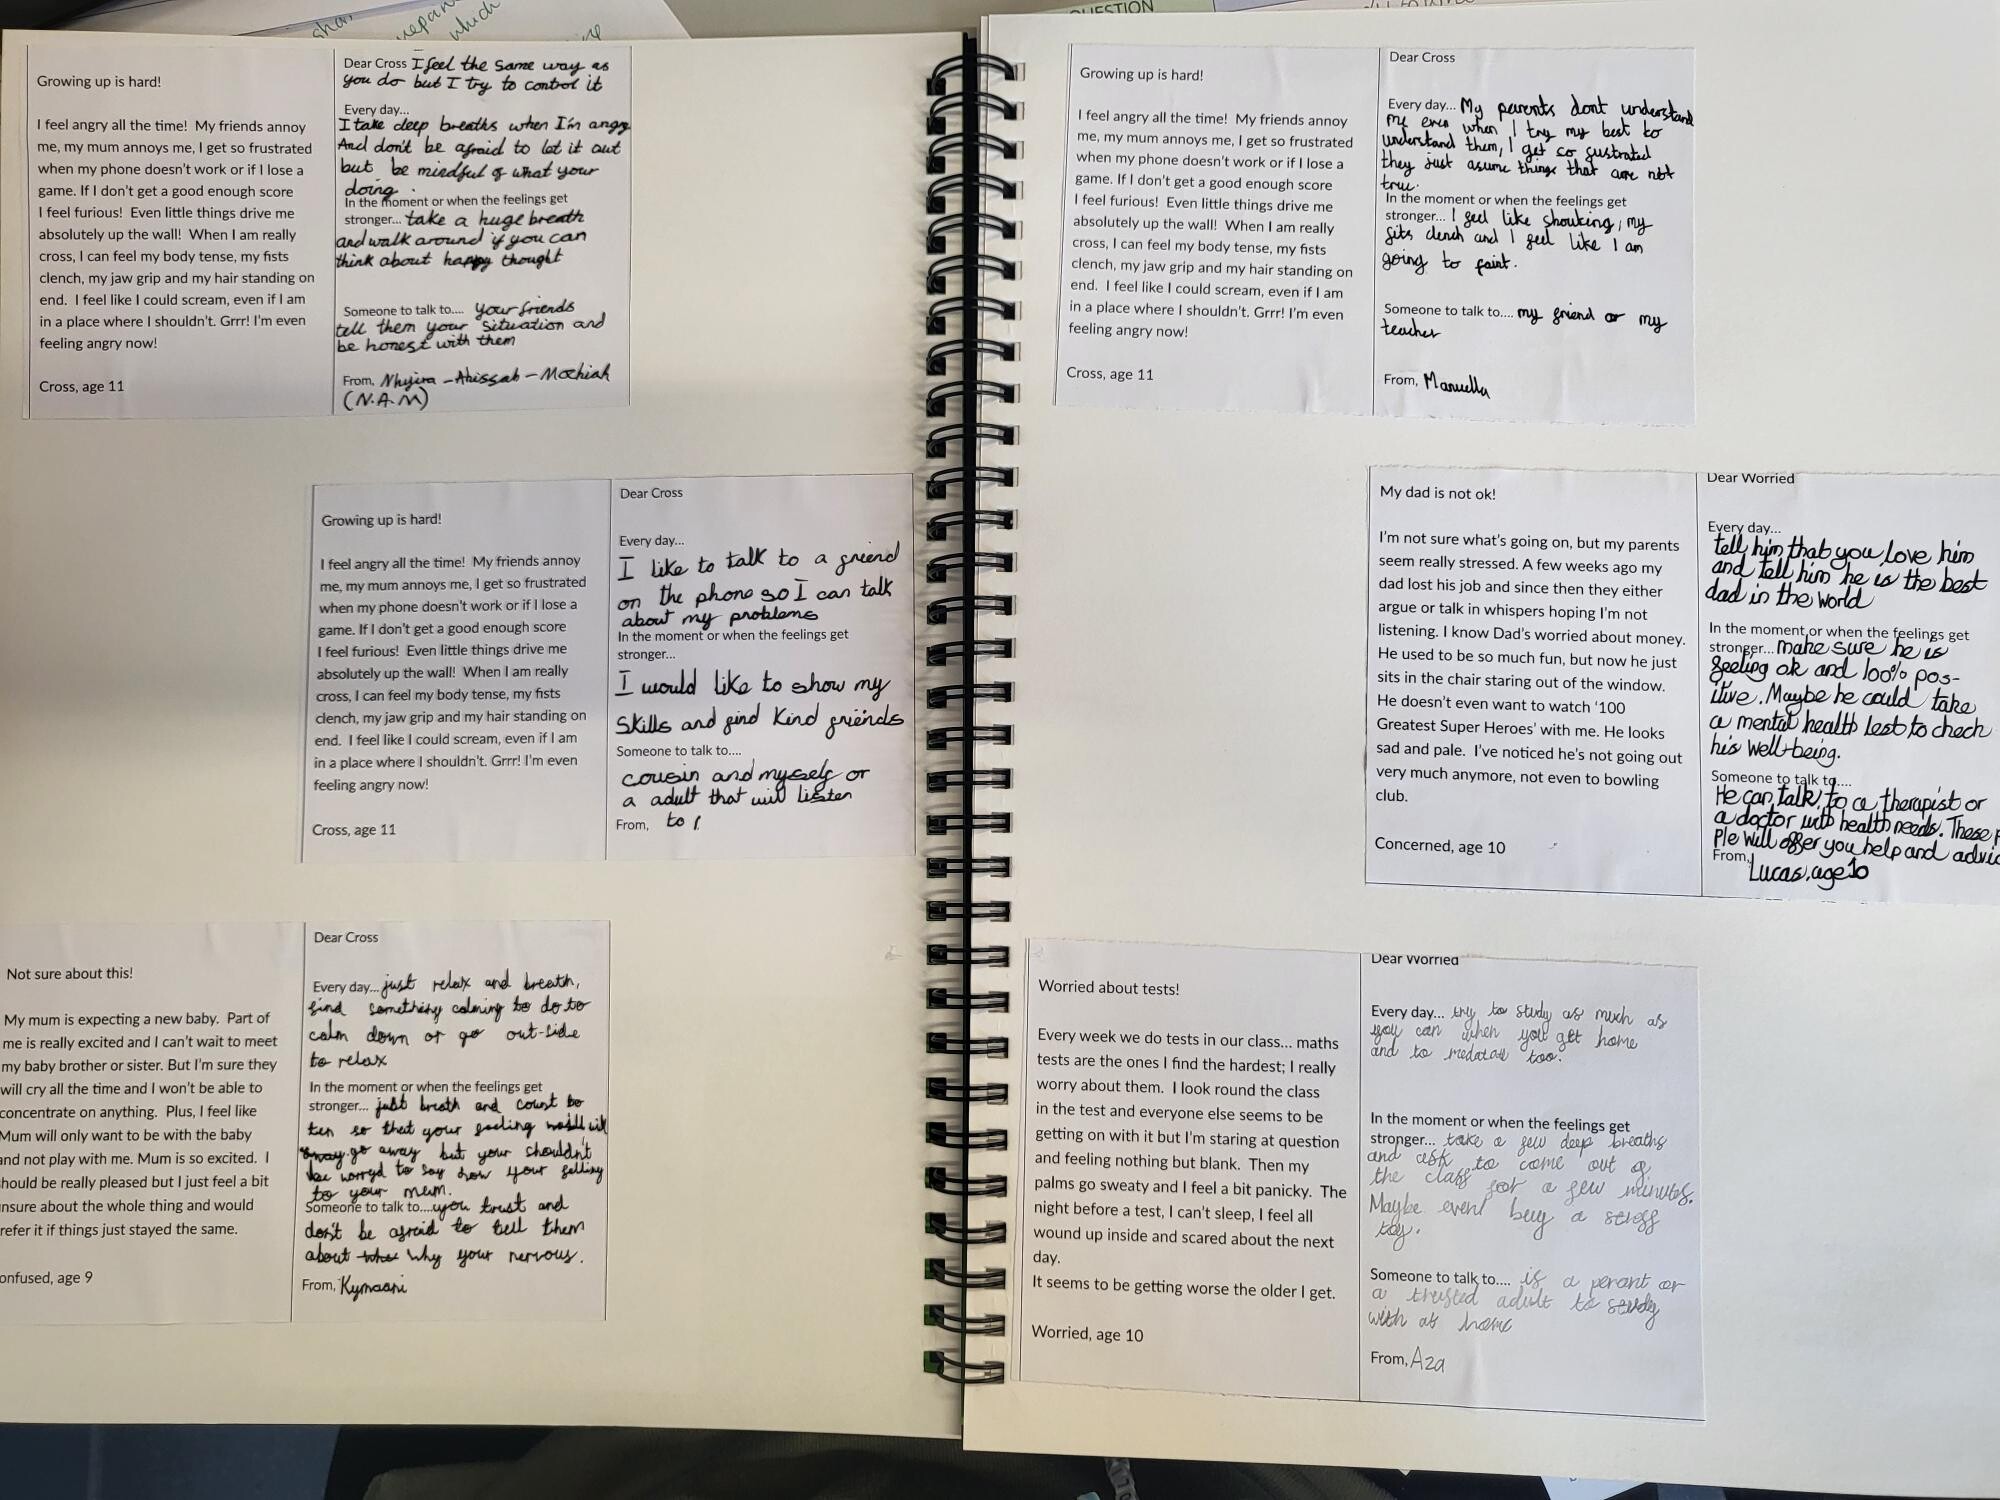 QUESTION
which
Growing up is hard!
I feel angry all the time! My friends annoy
me, my mum annoys me, I get so frustrated
when my phone doesn't work or if I lose a
game. If I don't get a good enough score
I feel furious! Even little things drive me
absolutely up the wall! When I am really
cross, I can feel my body tense, my fists
clench, my jaw grip and my hair standing on
end. I feel like I could scream, even if I am
in a place where I shouldn't. Grrr! I'm even
feeling angry now!
Cross, age 11
Dear Cross I feel the same way as
you do but I try to control it
Every day...
I take deep breaths when I'm angry
And don't be afraid to let it out
but be mindful of what your
doing.
In the moment or when the feelings get
stronger... take a huge breath
and walk around if you can
think about happy thought
Someone to talk to.... your friends
tell them your situation and
be honest with them
From, Nhyira-Ahissah-Mochiah
(N.A.M)
Growing up is hard!
I feel angry all the time! My friends annoy
me, my mum annoys me, I get so frustrated
when my phone doesn't work or if I lose a
game. If I don't get a good enough score
I feel furious! Even little things drive me
absolutely up the wall! When I am really
cross, I can feel my body tense, my fists
clench, my jaw grip and my hair standing on
end. I feel like I could scream, even if I am
in a place where I shouldn't. Grrr! I'm even
feeling angry now!
Cross, age 11
Dear Cross
Every day...
I like to talk to a friend
on the phone so I can talk
about my problems
In the moment or when the feelings get
stronger...
I would like to show my
skills and find kind friends
Someone to talk to....
cousin and myself or
a adult that will listen
From, to
Not sure about this!
My mum is expecting a new baby. Part of
me is really excited and I can't wait to meet
my baby brother or sister. But I'm sure they
will cry all the time and I won't be able to
concentrate on anything. Plus, I feel like
Mum will only want to be with the baby
and not play with me. Mum is so excited. I
hould be really pleased but I just feel a bit
nsure about the whole thing and would
refer it if things just stayed the same.
onfused, age 9
Dear Cross
Every day... just relax and breath,
find something calming to do to
calm down or go out-side
to relax
In the moment or when the feelings get
stronger... just breath and count to
ten so that your feeling will
go away but your shouldn't
be worryd to say how your felling
to your mum.
Someone to talk to.... you trust and
don't be afraid to tell them
about why your nervous.
From, Kymaani
Growing up is hard!
I feel angry all the time! My friends annoy
me, my mum annoys me, I get so frustrated
when my phone doesn't work or if I lose a
game. If I don't get a good enough score
I feel furious! Even little things drive me
absolutely up the wall! When I am really
cross, I can feel my body tense, my fists
clench, my jaw grip and my hair standing on
end. I feel like I could scream, even if I am
in a place where I shouldn't. Grrr! I'm even
feeling angry now!
Cross, age 11
Dear Cross
Every day... My parents dont understand
me even when I try my best to
understand them, I get so fustrated
they just asume things that are not
true.
In the moment or when the feelings get
stronger... I feel like shouting, my
fits clench and I feel like I am
going to faint.
Someone to talk to.... my friend or my
teacher
From, Manuella
My dad is not ok!
I'm not sure what's going on, but my parents
seem really stressed. A few weeks ago my
dad lost his job and since then they either
argue or talk in whispers hoping I'm not
listening. I know Dad's worried about money.
He used to be so much fun, but now he just
sits in the chair staring out of the window.
He doesn't even want to watch '100
Greatest Super Heroes' with me. He looks
sad and pale. I've noticed he's not going out
very much anymore, not even to bowling
club.
Concerned, age 10
Dear Worried
Every day...
tell him that you love him
and tell him he is the best
dad in the world
In the moment or when the feelings get
stronger... make sure he is
feeling ok and 100% pos-
itive. Maybe he could take
a mental health test to check
his well-being.
Someone to talk to....
He can talk to a therapist or
a doctor with health needs. These p
ple will offer you help and advic
From,
Lucas, age 10
Worried about tests!
Every week we do tests in our class... maths
tests are the ones I find the hardest; I really
worry about them. I look round the class
in the test and everyone else seems to be
getting on with it but I'm staring at question
and feeling nothing but blank. Then my
palms go sweaty and I feel a bit panicky. The
night before a test, I can't sleep, I feel all
wound up inside and scared about the next
day.
It seems to be getting worse the older I get.
Worried, age 10
Dear Worried
Every day... try to study as much as
you can when you get home
and to too.
In the moment or when the feelings get
stronger... take a few deep breaths
and ask to come out of
the class for a few minutes.
Maybe even buy a stress
toy.
Someone to talk to.... is a perant or
a trusted adult to study
with at home
From, Aza